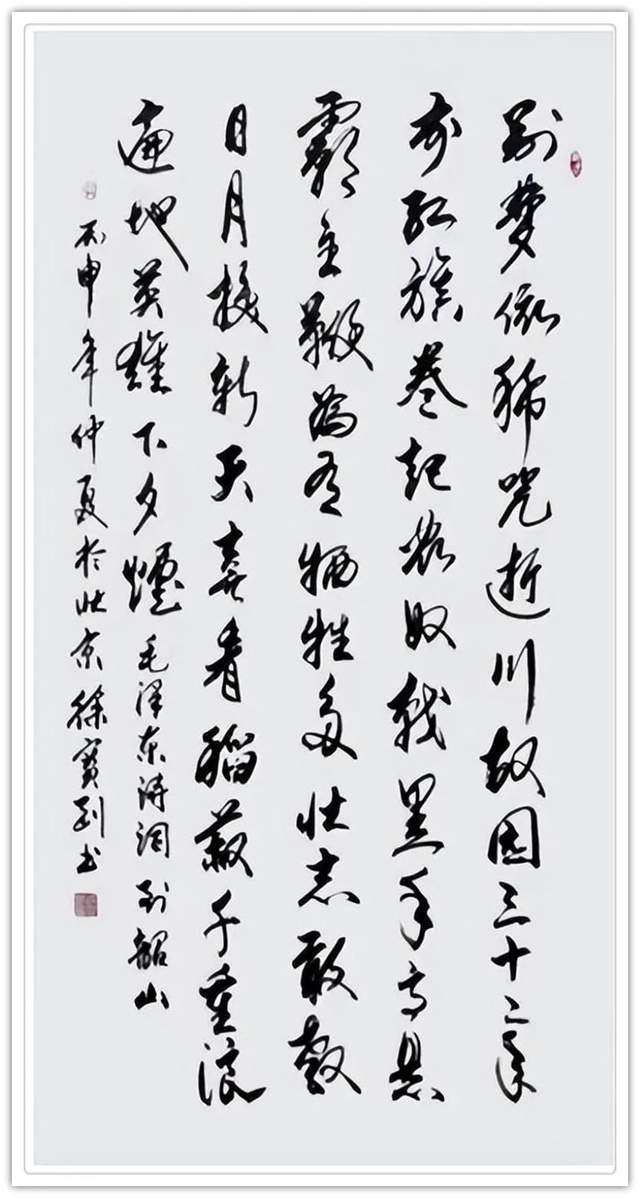 别夢依稀咒逝川故园三十二年
前红旗卷起农奴戟黑手高悬
霸主鞭為有牺牲多壮志敢教
日月换新天喜看稻菽千重浪
遍地英雄下夕煙毛泽东诗词到韶山
丙申年仲夏於北京徐寶书